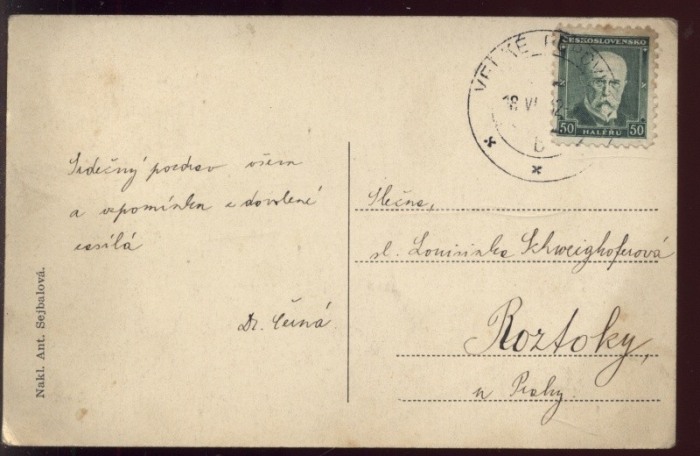 ČESKOSLOVENSKO
50 HALÉŘŮ 50
VELKÉ
18 VI
Srdečný pozdrav všem
a vzpomínku z dovolené
zasílá
Dr. Černá
Slečna,
sl. Louisinka Schweighoferová
Roztoky,
u Prahy.
Nakl. Ant. Sejbalová.